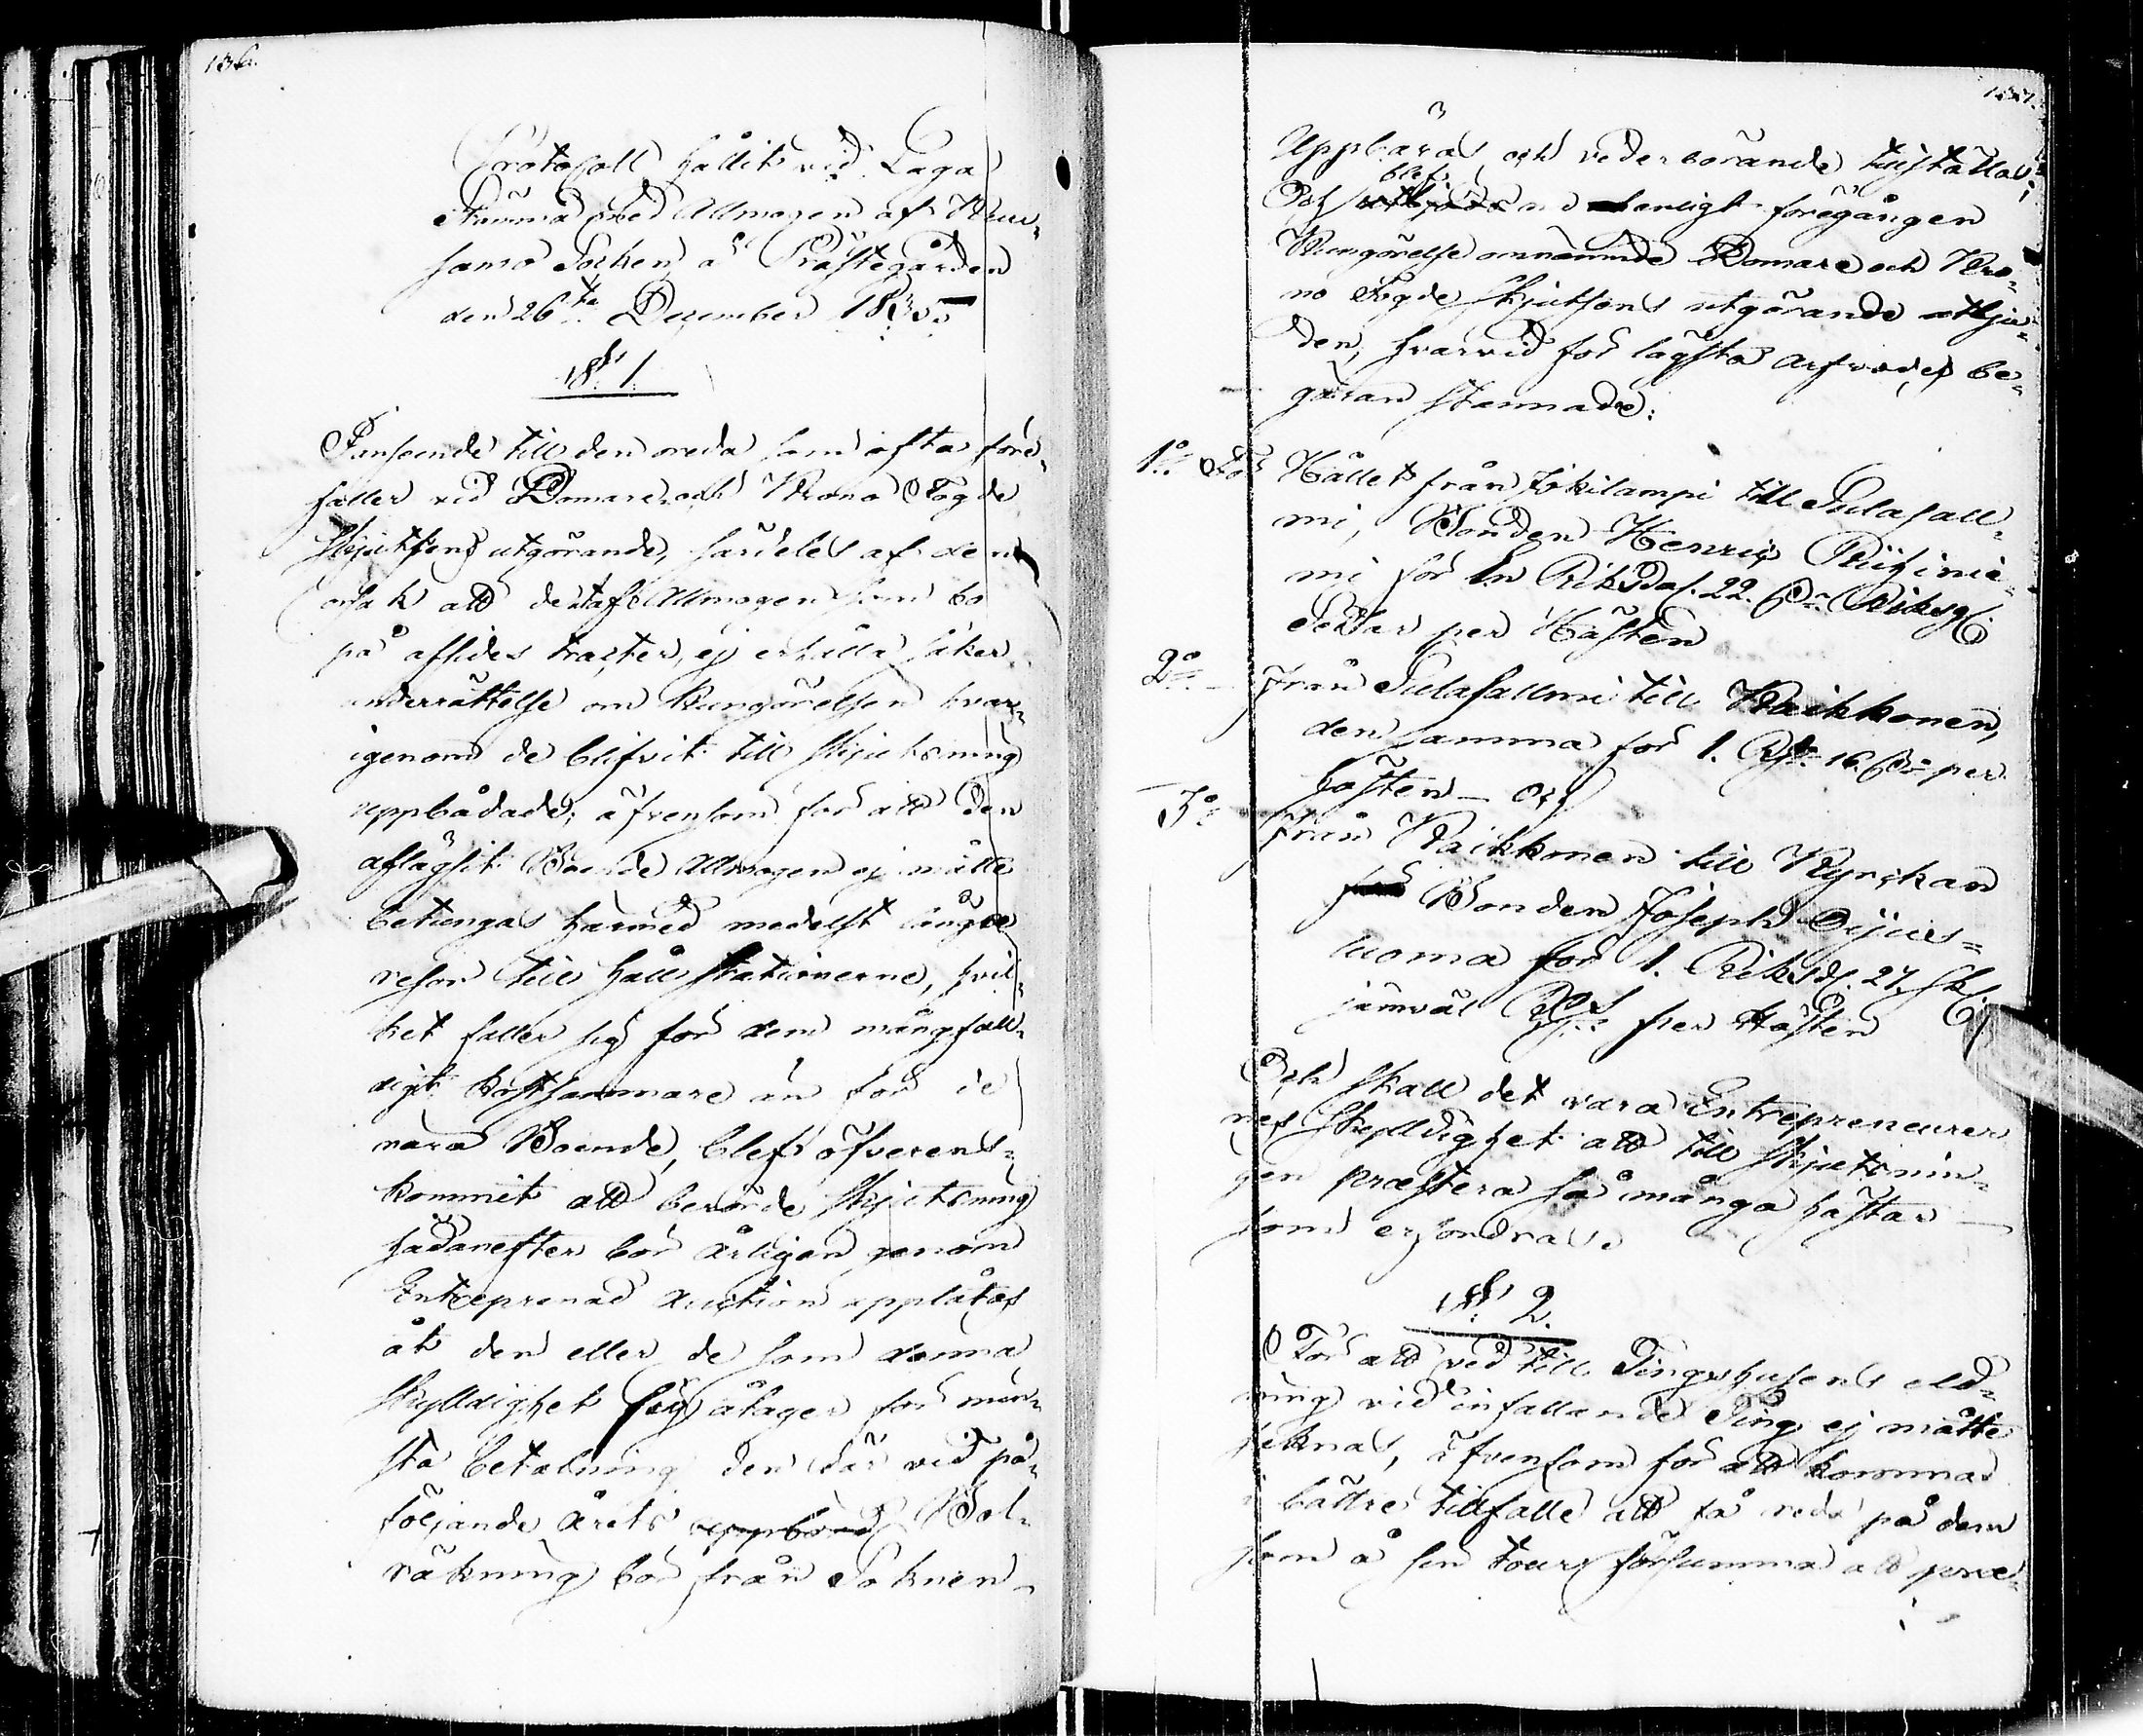 136.
Protocoll hållit vid Laga
Stämma med Allmogen af Kuu-
samo Socken å Prästegården
den 26te December 1835.
§ 1.
I anseende till den oreda som ofta före-
faller vid Domare och Krono Fogde
Skjutsens utgörande, särdeles af den
orsak att den Allmogen som bo
på afsides tracter, ej erhålla säker
underrättelse om Kungörelsen hvar-
igenom de blifvit till skjutsning
uppbådade; äfvensom för att den
aflägsit Boende Allmogen ej måtte
betungas härmed medelst långa
resor till håll stationerne, hvil-
ket faller sig för dem mångfall-
digt kostsammare än för de
nära Boende, blef öfverens-
kommit att berörde Skjutsning
hädanefter bör årligen genom
Entreprenad Auction upplåtas
åt den eller de som denna
Skylldighet sig åtager för min-
sta betalning den där vid på-
följande årets uppbörd Bol-
räkning bör från Soknen
137.
Uppbäras och vederbörande tillställas;
blef
Och utbjöds and enligt föregången
Kungörelse omnämnde Domare och Kro-
no Fogde Skjutsens utgörande utbju-
den, hvarvid för lägsta arfvodes be-
gäran stannade:
1o För Hållet från Jokilampi till Sulasall-
mi, Bonden Henric Riihinie-
mi för En Riksdal. 22. s. Riksg.
Sedlar per Hästen
2o Från Sulasallmi till Kaikkonen,
den samma för 1. R. 16. s. per
hästen _ Och
3o Från Kaikkonen till Kyrckan
för Bonden Joseph Oijus-
luoma för 1. Riksd. 27. sk.
jämväl RGS per Hästen
Och skall det vara Entrepreneurer
nes Skylldighet att till Skjutsnin-
gen præstera så många hästar
som erfordras.
§ 2.
För att ved till Tingshusens eld-
ning vid infallande Ting ej måtte
seknas, äfvensom för att komma
i bättre tillfälle att få reda på dem
som å sin tour försumma att præ-